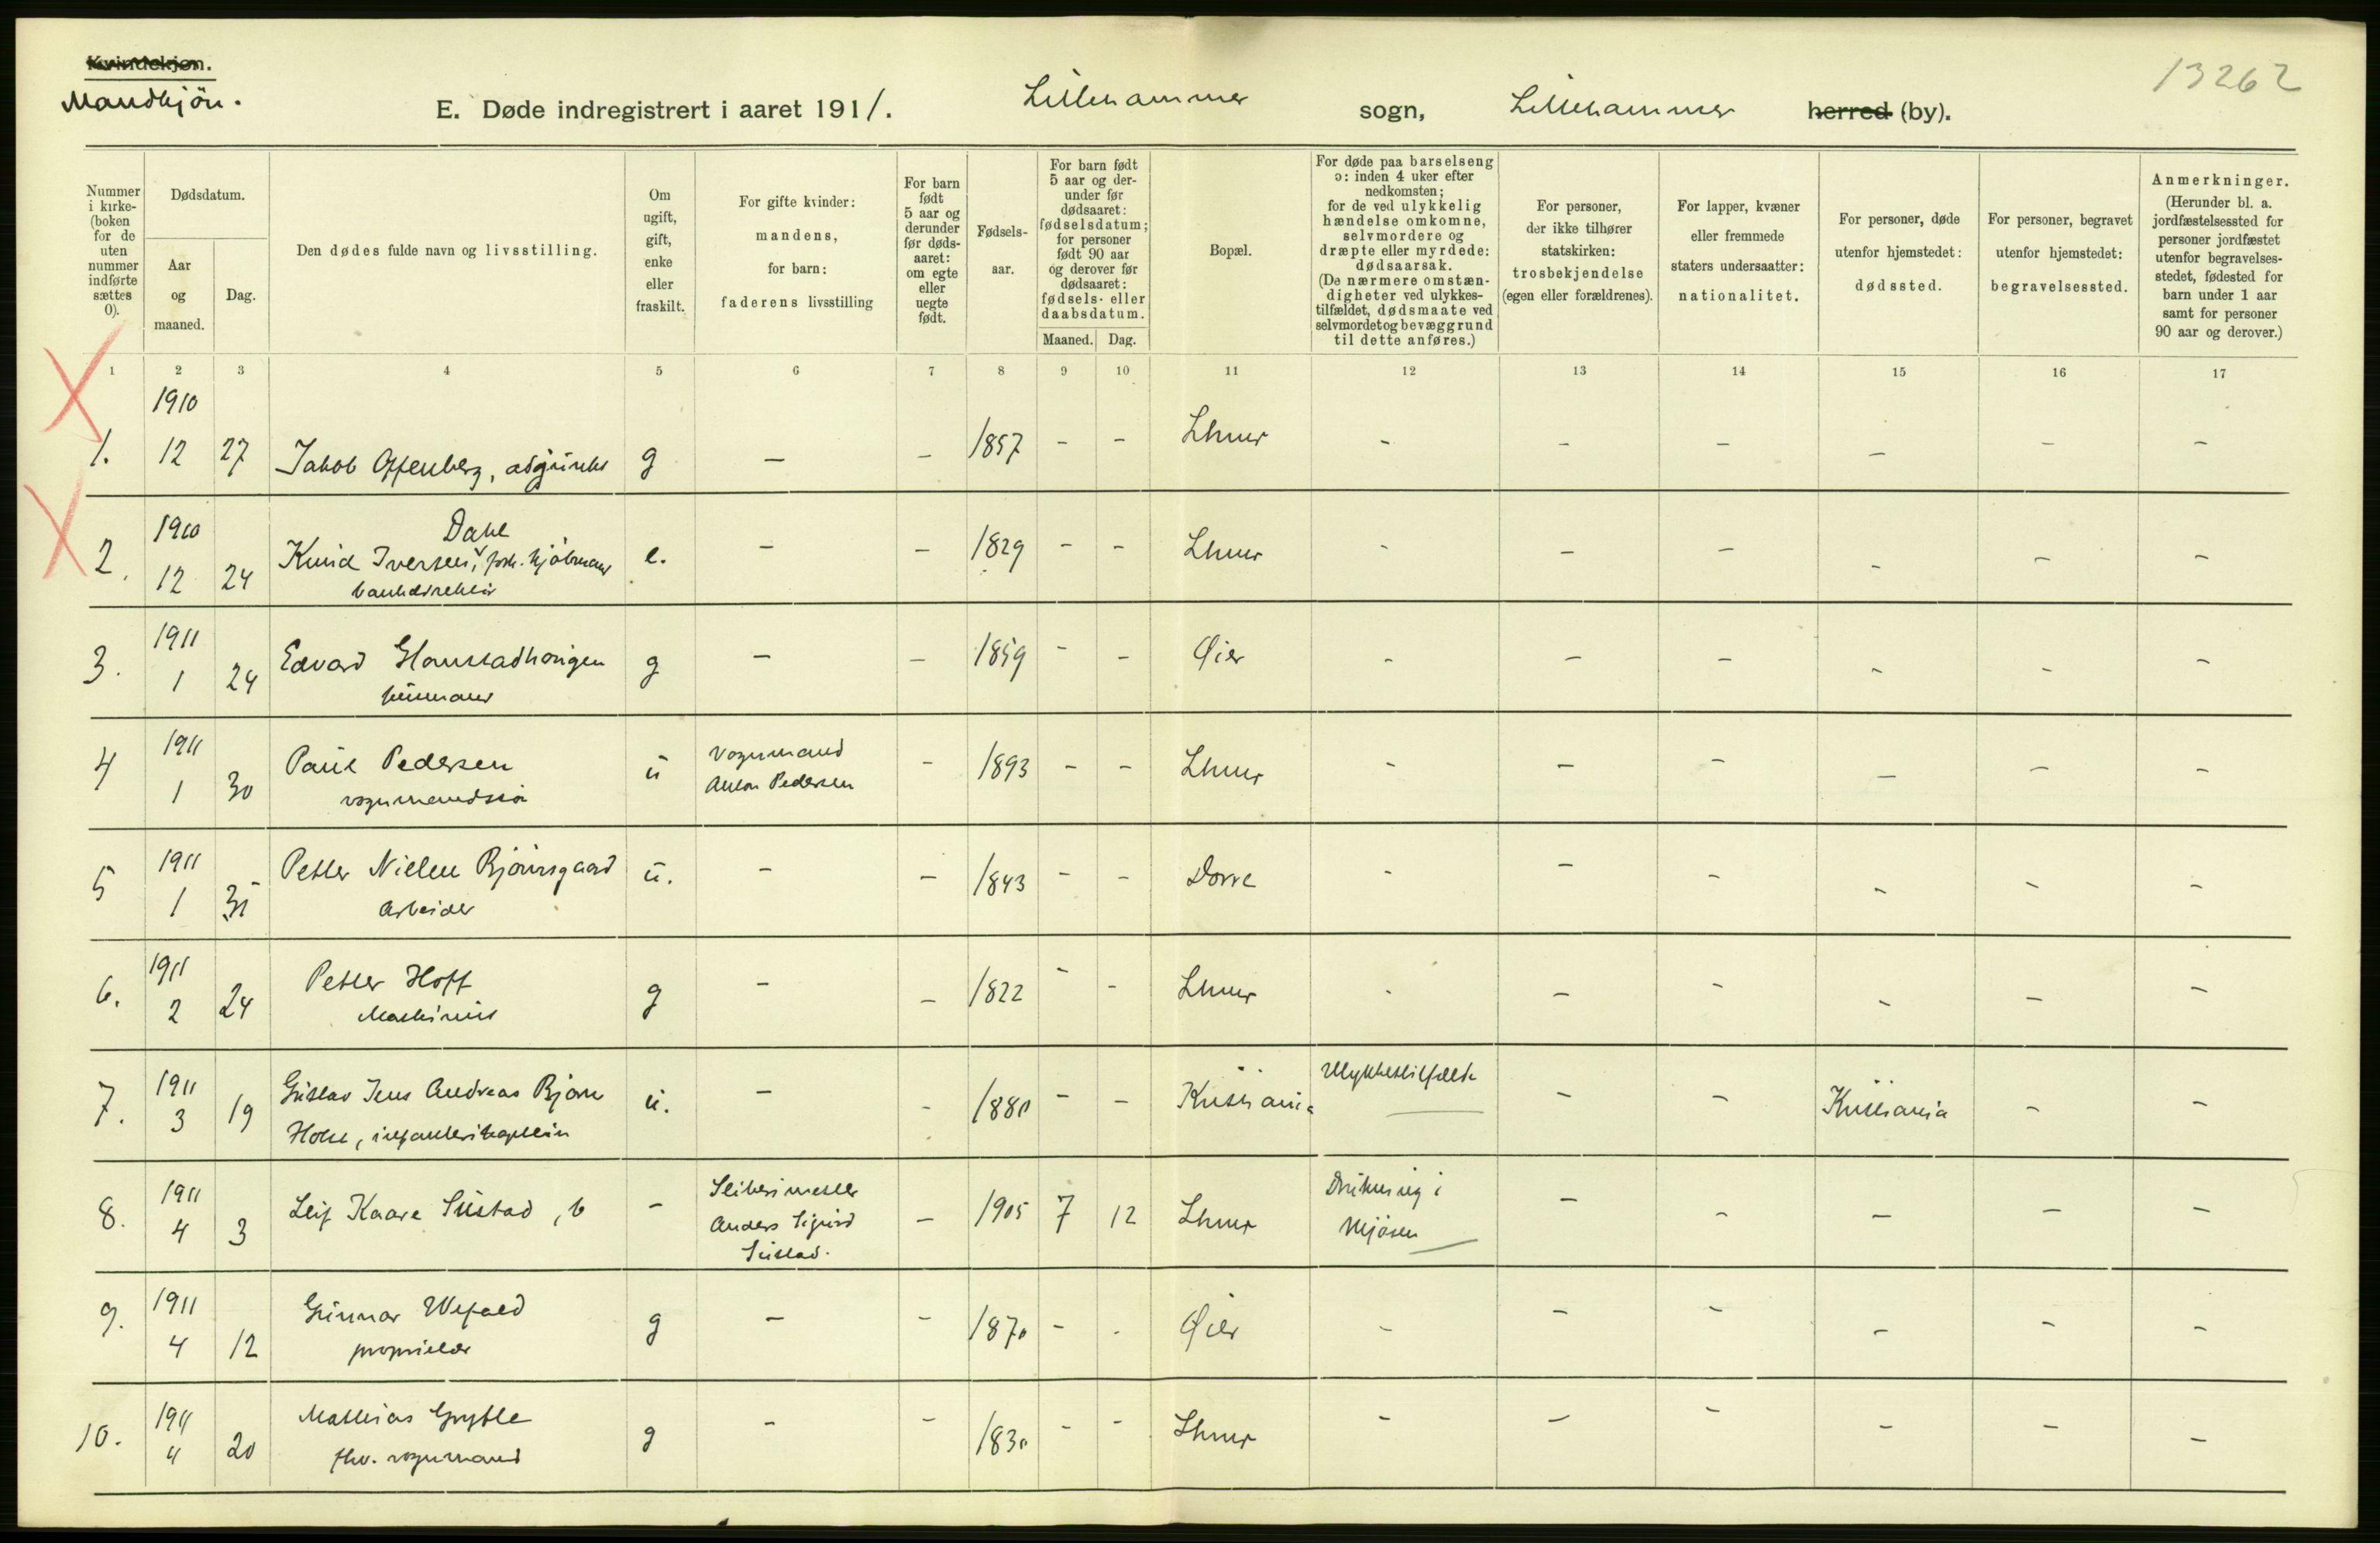 Kvindekjøn.
Mandkjøn.
13262
E. Døde indregistrert i aaret 1911. Lillehammer sogn, Lillehammer herred (by).
Nummer i kirke-(boken for de uten nummer indførte sættes 0).
Dødsdatum.
Aar og maaned.
Dag.
Den dødes fulde navn og livsstilling.
Om ugift, gift, enke eller fraskilt.
For gifte kvinder: mandens, for barn: faderens livsstilling
For barn født 5 aar og derunder før dødsaaret: om egte eller uegte født.
Fødselsaar.
For barn født 5 aar og derunder før dødsaaret: fødselsdatum; for personer født 90 aar og derover før dødsaaret: fødsels- eller daabsdatum.
Maaned. Dag.
Bopæl.
For døde paa barselseng ɔ: inden 4 uker efter nedkomsten; for de ved ulykkelig hændelse omkomne, selvmordere og dræpte eller myrdede: dødsaarsak. (De nærmere omstændigheter ved ulykkestilfældet, dødsmaate ved selvmordet og bevæggrund til dette anføres.)
For personer, der ikke tilhører statskirken: trosbekjendelse (egen eller forældrenes).
For lapper, kvæner eller fremmede staters undersaatter: nationalitet.
For personer, døde utenfor hjemstedet: dødssted.
For personer, begravet utenfor hjemstedet: begravelsessted.
Anmerkninger. (Herunder bl. a. jordfæstelsessted for personer jordfæstet utenfor begravelsesstedet, fødested for barn under 1 aar samt for personer 90 aar og derover.)
1 2 3 4 5 6 7 8 9 10 11 12 13 14 15 16 17
1910
1. 12 27 Jakob Offenberg, adjunkt g - - 1857 - - Lhmr - - - - - -
1910 Dahl
2. 12 24 Knud Iversen, forh. kjøbmand e. - - 1829 - - Lhmr - - - - - -
bankdirektør
1911
3. 1 24 Edvard Glomstadhaugen g - - 1859 - - Øier - - - - - -
husmand
1911
4 1 30 Paul Pedersen u vognmand - 1893 - - Lhmr - - - - - -
vognmandssøn Anton Pedersen
1911
5 1 31 Petter Nielsen Bjørnsgaard u. - - 1843 - - Dovre - - - - - -
Arbeider
1911
6. 2 24 Petter Hoff g - - 1822 - - Lhmr - - - - - -
Maskinist
1911
7. 3 19 Gustav Jens Andreas Bjørn u. - - 1880 - - Kristiania Ulykkestilfælde - - Kristiania - -
Holst, infanterikaptein
1911
8. 4 3 Leif Kaare Sustad, b - Slikkerimester - 1905 7 12 Lhmr Drukning i - - - - -
Anders Sigurd Mjøsen
Sustad.
1911
9. 4 12 Gunnar Wefald g - - 1870 - - Øier - - - - - -
proprietær
1911
10. 4 20 Mathias Grytle g - - 1830 - - Lhmr - - - - - -
fhv. vognmand